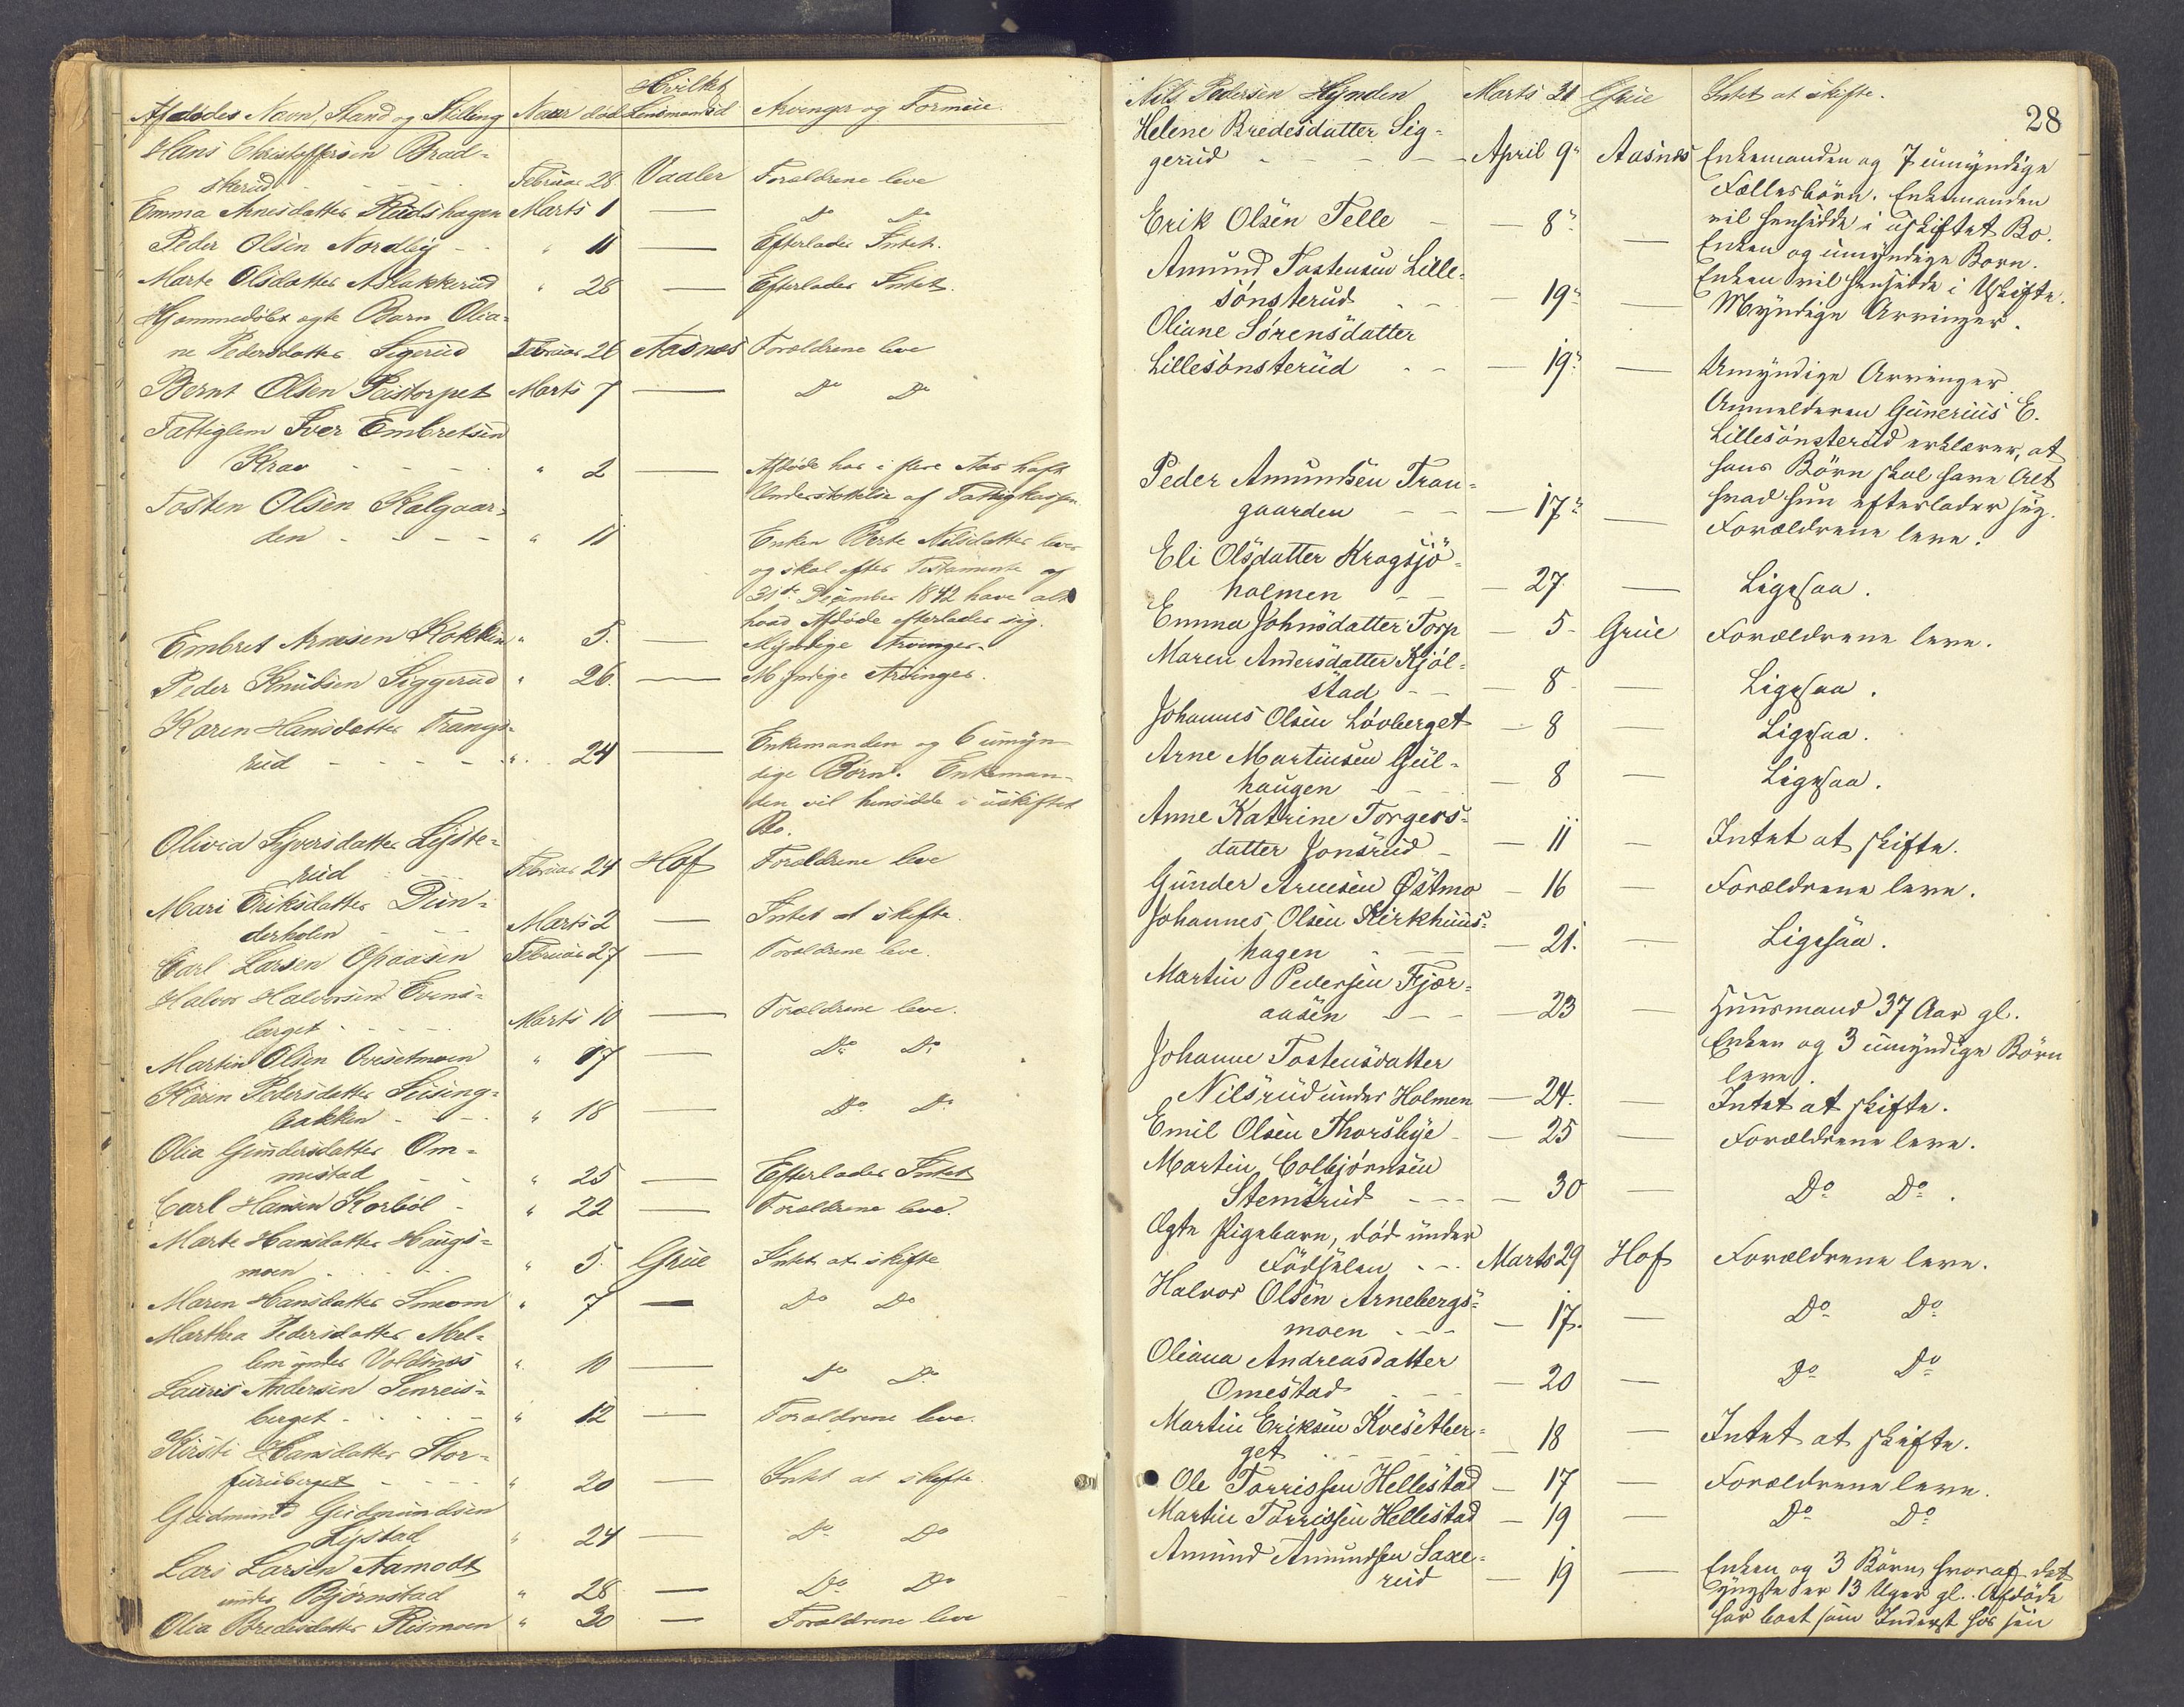 Hvilket
Afdødes Navn, Stand og Stilling Naar død Lensmandsd Arvinger og Formue.
Hans Christoffersen Brad-
skerud - - - - Februar 28 Vaaler Forældrene leve
Emma Arnesdatter Rudshagen Marts 1 — Do Do
Peder Olsen Nordby - - " 11 — Efterlader Intet.
Marte Olsdatter Aslakkerud " 28 — Efterlader Intet.
Hjemmedøbt ægte Barn Olia-
ne Pedersdatter Sigerud Februar 26 Aasnæs Forældrene leve
Bernt Olsen Peistorpet Marts 7 — Do Do
Fattiglem Iver Embretsen
Krav - - - - " 2 — Afdøde har i flere Aar havt
Understøttelse af Fattigkassen
Tosten Olsen Kalgaar-
den - - - - " 11 — Enken Berte Nilsdatter lever
og skal efter Testamente af
31te December 1842 have alt
hvad Afdøde efterlader sig.
Embret Arnesen Kokkin " 5. — Myndige Arvinger.
Peder Knudsen Siggerud " 26. — Myndige Arvinger.
Karen Hansdatter Trangs-
rud - - - - - " 24 — Enkemanden og 6 umyn-
dige Børn. Enkeman-
den vil hensidde i uskiftet
Bo.
Olivia Syversdatter Lyste-
rud - - - Februar 24 Hof Forældrene leve
Mari Eriksdatter Dun-
derholen - - Marts 2 — Intet at skifte.
Carl Larsen Opaasen Februar 27 — Forældrene leve.
Halvor Halvorsen Evens-
berget - - - - Marts 10 — Forældrene leve.
Martin Olsen Oversetmoen " 17 — Do Do
Karen Pedersdatter Susing-
bakken - - " 18 — Do Do
Olia Gundersdatter Om-
mestad - - " 25 — Efterlader Intet
Carl Hansen Korbøl - " 22 — Forældrene leve.
Marte Hansdatter Haugs-
moen - - - - " 5. Grue Intet at skifte
Maren Hansdatter Smeom " 7 — Do Do
Marthea Pedersdatter Mel-
lem under Voldnæs " 10 — Do Do
Lauris Andersen Senreis-
berget - - - - " 12 — Forældrene leve.
Kirsti Hansdatter Stor-
furuberget - - - " 20 — Intet at skifte.
Gudmund Gudmundsen
Lystad " 24 — Do Do
Lars Larsen Aamodt
under Bjørnstad " 28 — Do Do
Olia Bredesdatter Rismoen " 30 — Forældrene leve
28
Nils Pedersen Hynden Marts 31 Grue Intet at skifte.
Helene Bredesdatter Sig-
gerud - - - - April 9" Aasnæs Enkemanden og 7 umyndige
Fællesbørn. Enkemanden
vil hensidde i uskiftet Bo.
Erik Olsen Telle - - 8" — Enken og umyndige Born.
Enken vil hensidde i Uskifte.
Amund Tostensen Lille-
sønsterud - - - 19" — Myndige Arvinger.
Oliane Sørensdatter
Lillesønsterud - - - 19" — Umyndige Arvinger
Anmelderen Gunerius E.
Lillesønsterud erklærer, at
hans Børn skal have Alt
hvad hun efterlader sig.
Peder Amundsen Tran-
gaarden - - - 17" — Forældrene leve.
Eli Olsdatter Kragsjø-
holmen - - - 27 — Ligesaa.
Emma Johnsdatter Torp - 5 - Grue Forældrene leve.
Maren Andersdatter Kjøl-
stad - - - 8 - — Ligesaa.
Johannes Olsen Løvberget - 8 — Ligesaa.
Arne Martinsen Gul-
haugen - - - 8 — Ligesaa.
Anne Katrine Torgers-
datter Jonsrud - - 11 — Intet at skifte.
Gunder Arnesen Østmo - 16 — Forældrene leve.
Johannes Olsen Kirkhuus-
hagen - - - 21. — Ligesaa.
Martin Pedersen Fjær-
aasen - - - - 23 — Huusmand 37 Aar gl.
Enken og 3 umyndige Børn
leve.
Johanne Tostensdatter
Nilsrud under Holmen - 24. — Intet at skifte.
Emil Olsen Thorsbye - - 25 — Forældrene leve.
Martin Colbjørnsen
Stemsrud - - - - 30 — Do Do.
Ægte Pigebarn, død under
Fødselen - - - Marts 29 Hof Forældrene leve.
Halvor Olsen Arnebergs-
moen - - - - 17. — Do Do
Oliana Andreasdatter
Omestad - - - - 20 — Do Do
Martin Eriksen Kvesetber-
get - - - - 18 — Intet at skifte.
Ole Torrissen Hellestad - 17 — Forældrene leve.
Martin Torrissen Hellestad - 19 — Do Do
Amund Amundsen Saxe-
rud - 19 — Enken og 3 Børn, hvoraf det
yngste er 13 Uger gl. Afdøde
har boet som Inderst hos sin